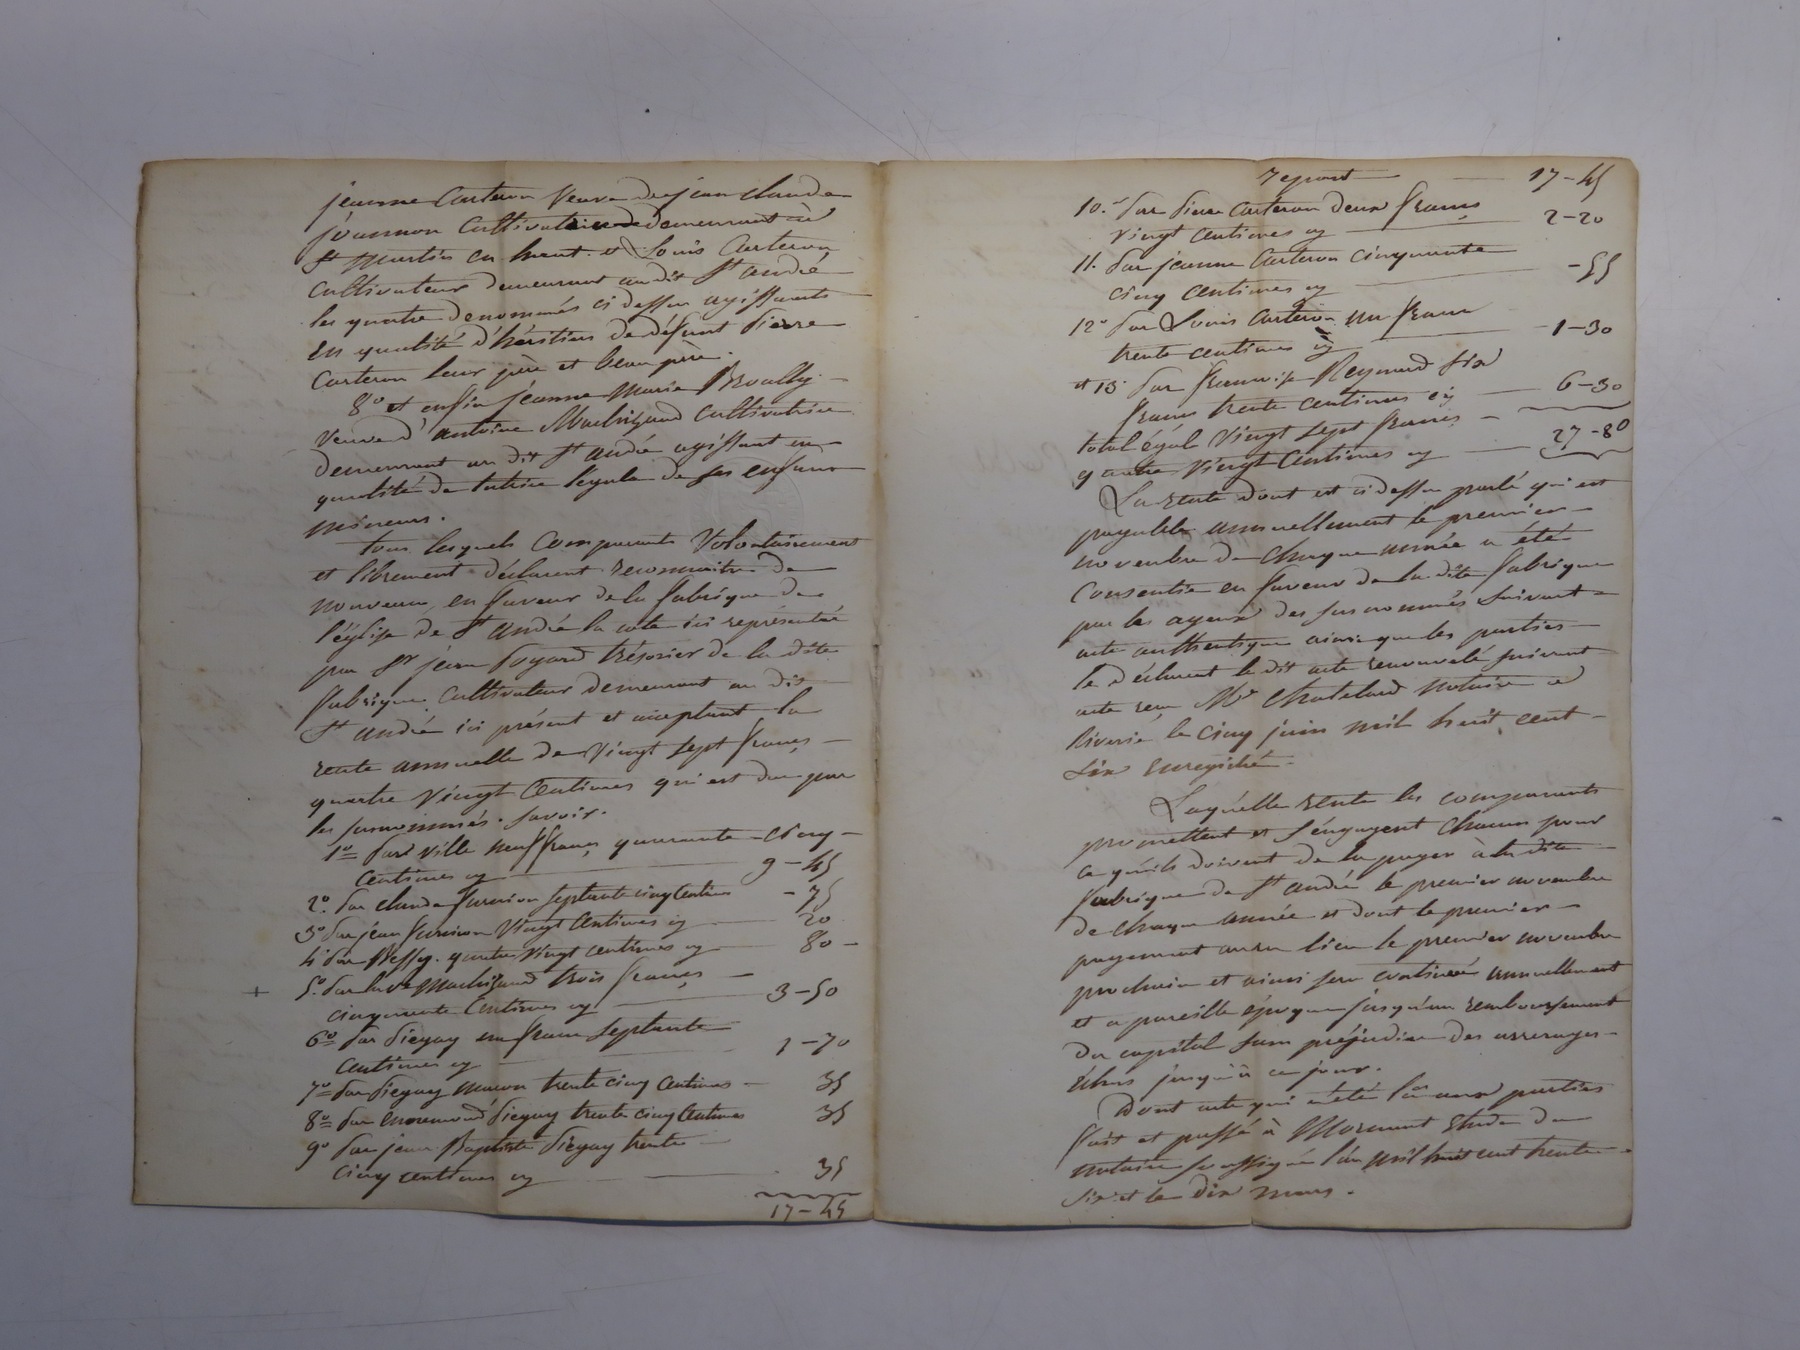 jeanne Carteron Veuve de jean claude
joannon Cultivatrice demeurant à
St Martin en haut et Louis Carteron
cultivateur demeurant au dit St andré
les quatre denommés ci dessus agissants
en qualité d'héritiers de défunt Pierre
Carteron leur père et beau père.
8o et enfin jeanne Marie Brouilly
veuve d'antoine Machizaud cultivatrice
demeurant au dit St andré agissant en
qualité de tutrice légale de ses enfans
mineurs.
tous lesquels Comparants Volontairement
et librement déclarent reconnaitre de
nouveau, en faveur de la fabrique de
l'église de St andré la cote ici représentée
par Sr jean Poyard trésorier de la dite
fabrique, cultivateur demeurant au dit
St andré ici présent et acceptant la
rente annuelle de Vingt sept francs
quatre Vingt Centimes qui est due par
les surnommés. Savoir.
1o Par ville neuf francs quarante cinq
Centimes cy 9-45
2o. Par claude septante cinq Centimes -75
3o Par jean Vingt Centimes cy 20
4o Par quatre Vingt centimes cy 80-
+ 5o. Par la ve Machizaud trois francs
cinquante Centimes cy 3-50
6o Par Piegay un franc septante
Centimes cy 1-70
7o Par Piegay maçon trente cinq Centimes 35
8o Par Piegay trente cinq Centimes 35
9o Par jean Baptiste Piegay trente
cinq centimes cy 35
17-45
Report 17-45
10. Par Pierre Carteron deux francs
vingt centimes cy 2-20
11. Par jeanne Carteron cinquante
cinq centimes cy -55
12o Par Louis Carteron un franc
trente centimes cy 1-30
et 13. Par françoise Reynard six
francs trente centimes cy 6-30
total égal Vingt sept francs
quatre Vingt Centimes cy 27-80
La rente dont est ci dessus parlé qui est
payable annuellement le premier
novembre de chaque année a été
Consentie en faveur de la dite fabrique
par les ayeux des surnommés suivant
acte authentique ainsi que les parties
le déclarent le dit acte renouvelé suivant
acte reçu Me Chatelard notaire à
Riverie le cinq juin mil huit cent
six enregistré.
Laquelle rente les comparants
promettent et s'engagent chacun pour
ce qu'ils doivent de la payer à la dite
fabrique de St andré le premier novembre
de chaque année et dont le premier
payement aura lieu le premier novembre
prochain et ainsi sera continué annuellement
et a pareille époque jusqu'au remboursement
du capital sans préjudice des arrerages
échus jusqu'à ce jour.
Dont acte qui a été lu aux parties
fait et passé à Mornant Etude du
notaire soussigné l'an mil huit cent trente
six et le dix mars.